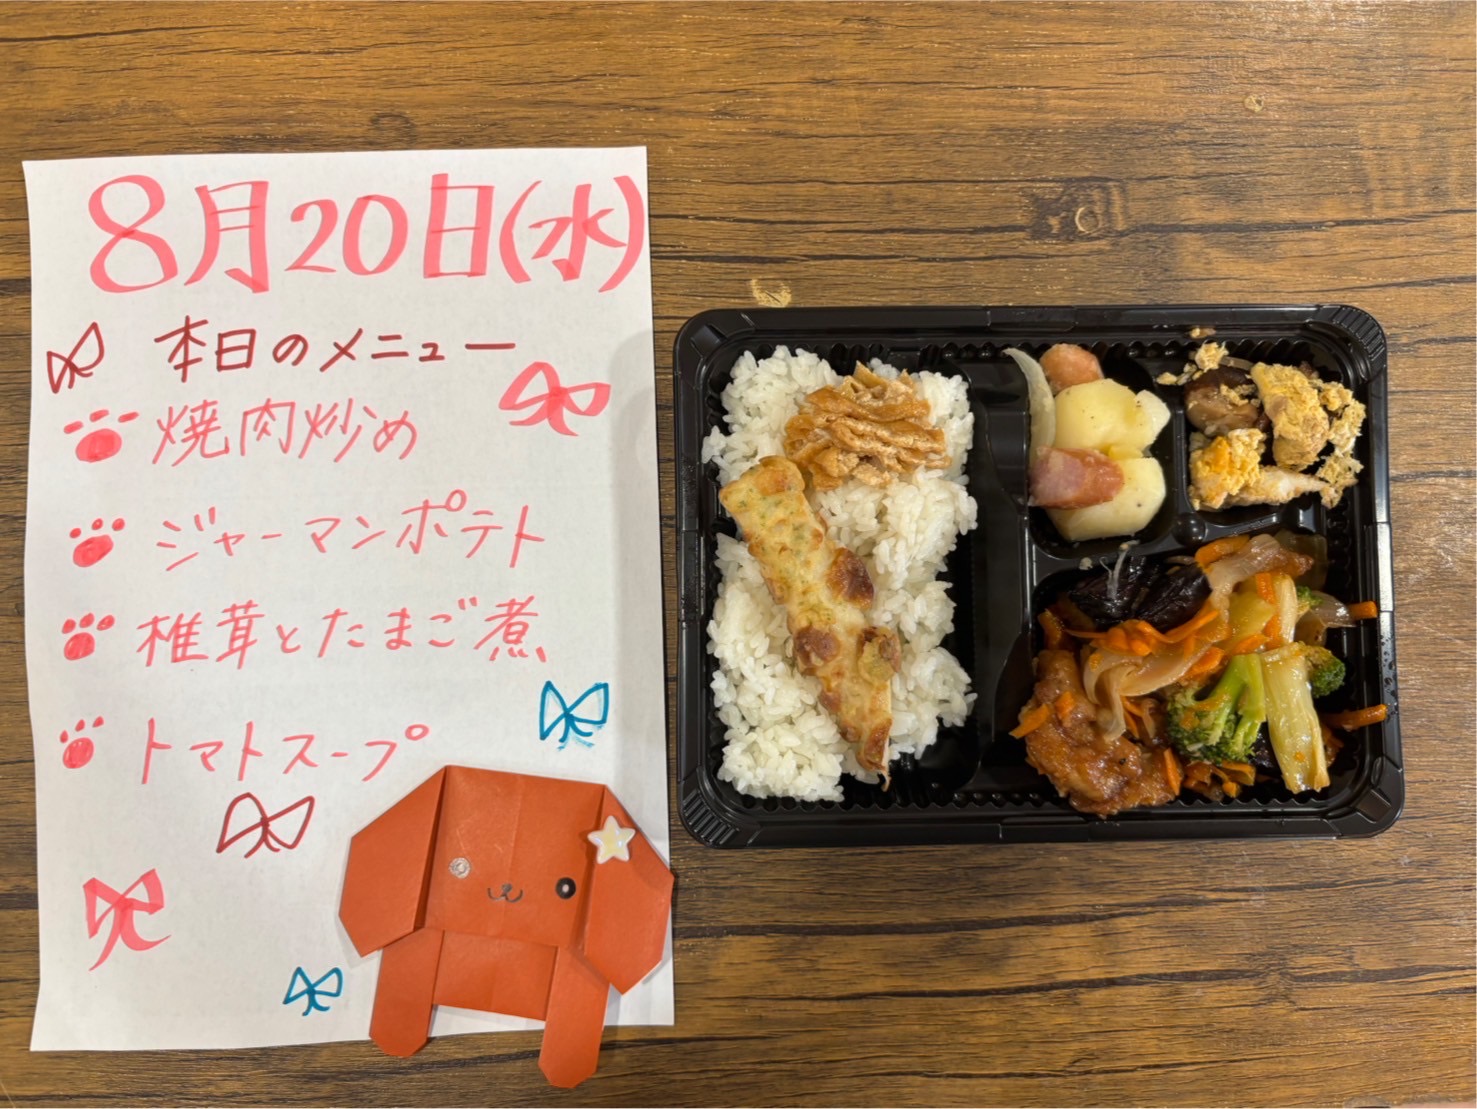 8月20日(水)
本日のメニュー
焼肉炒め
ジャーマンポテト
椎茸とたまご煮
トマトスープ